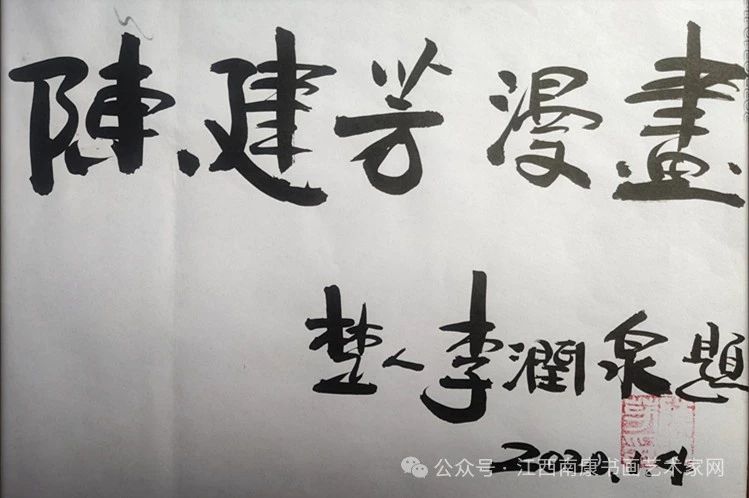 陳建芳漫畫
楚人李潤泉題
2020.1.9
公众号·江西南康书画艺术家网